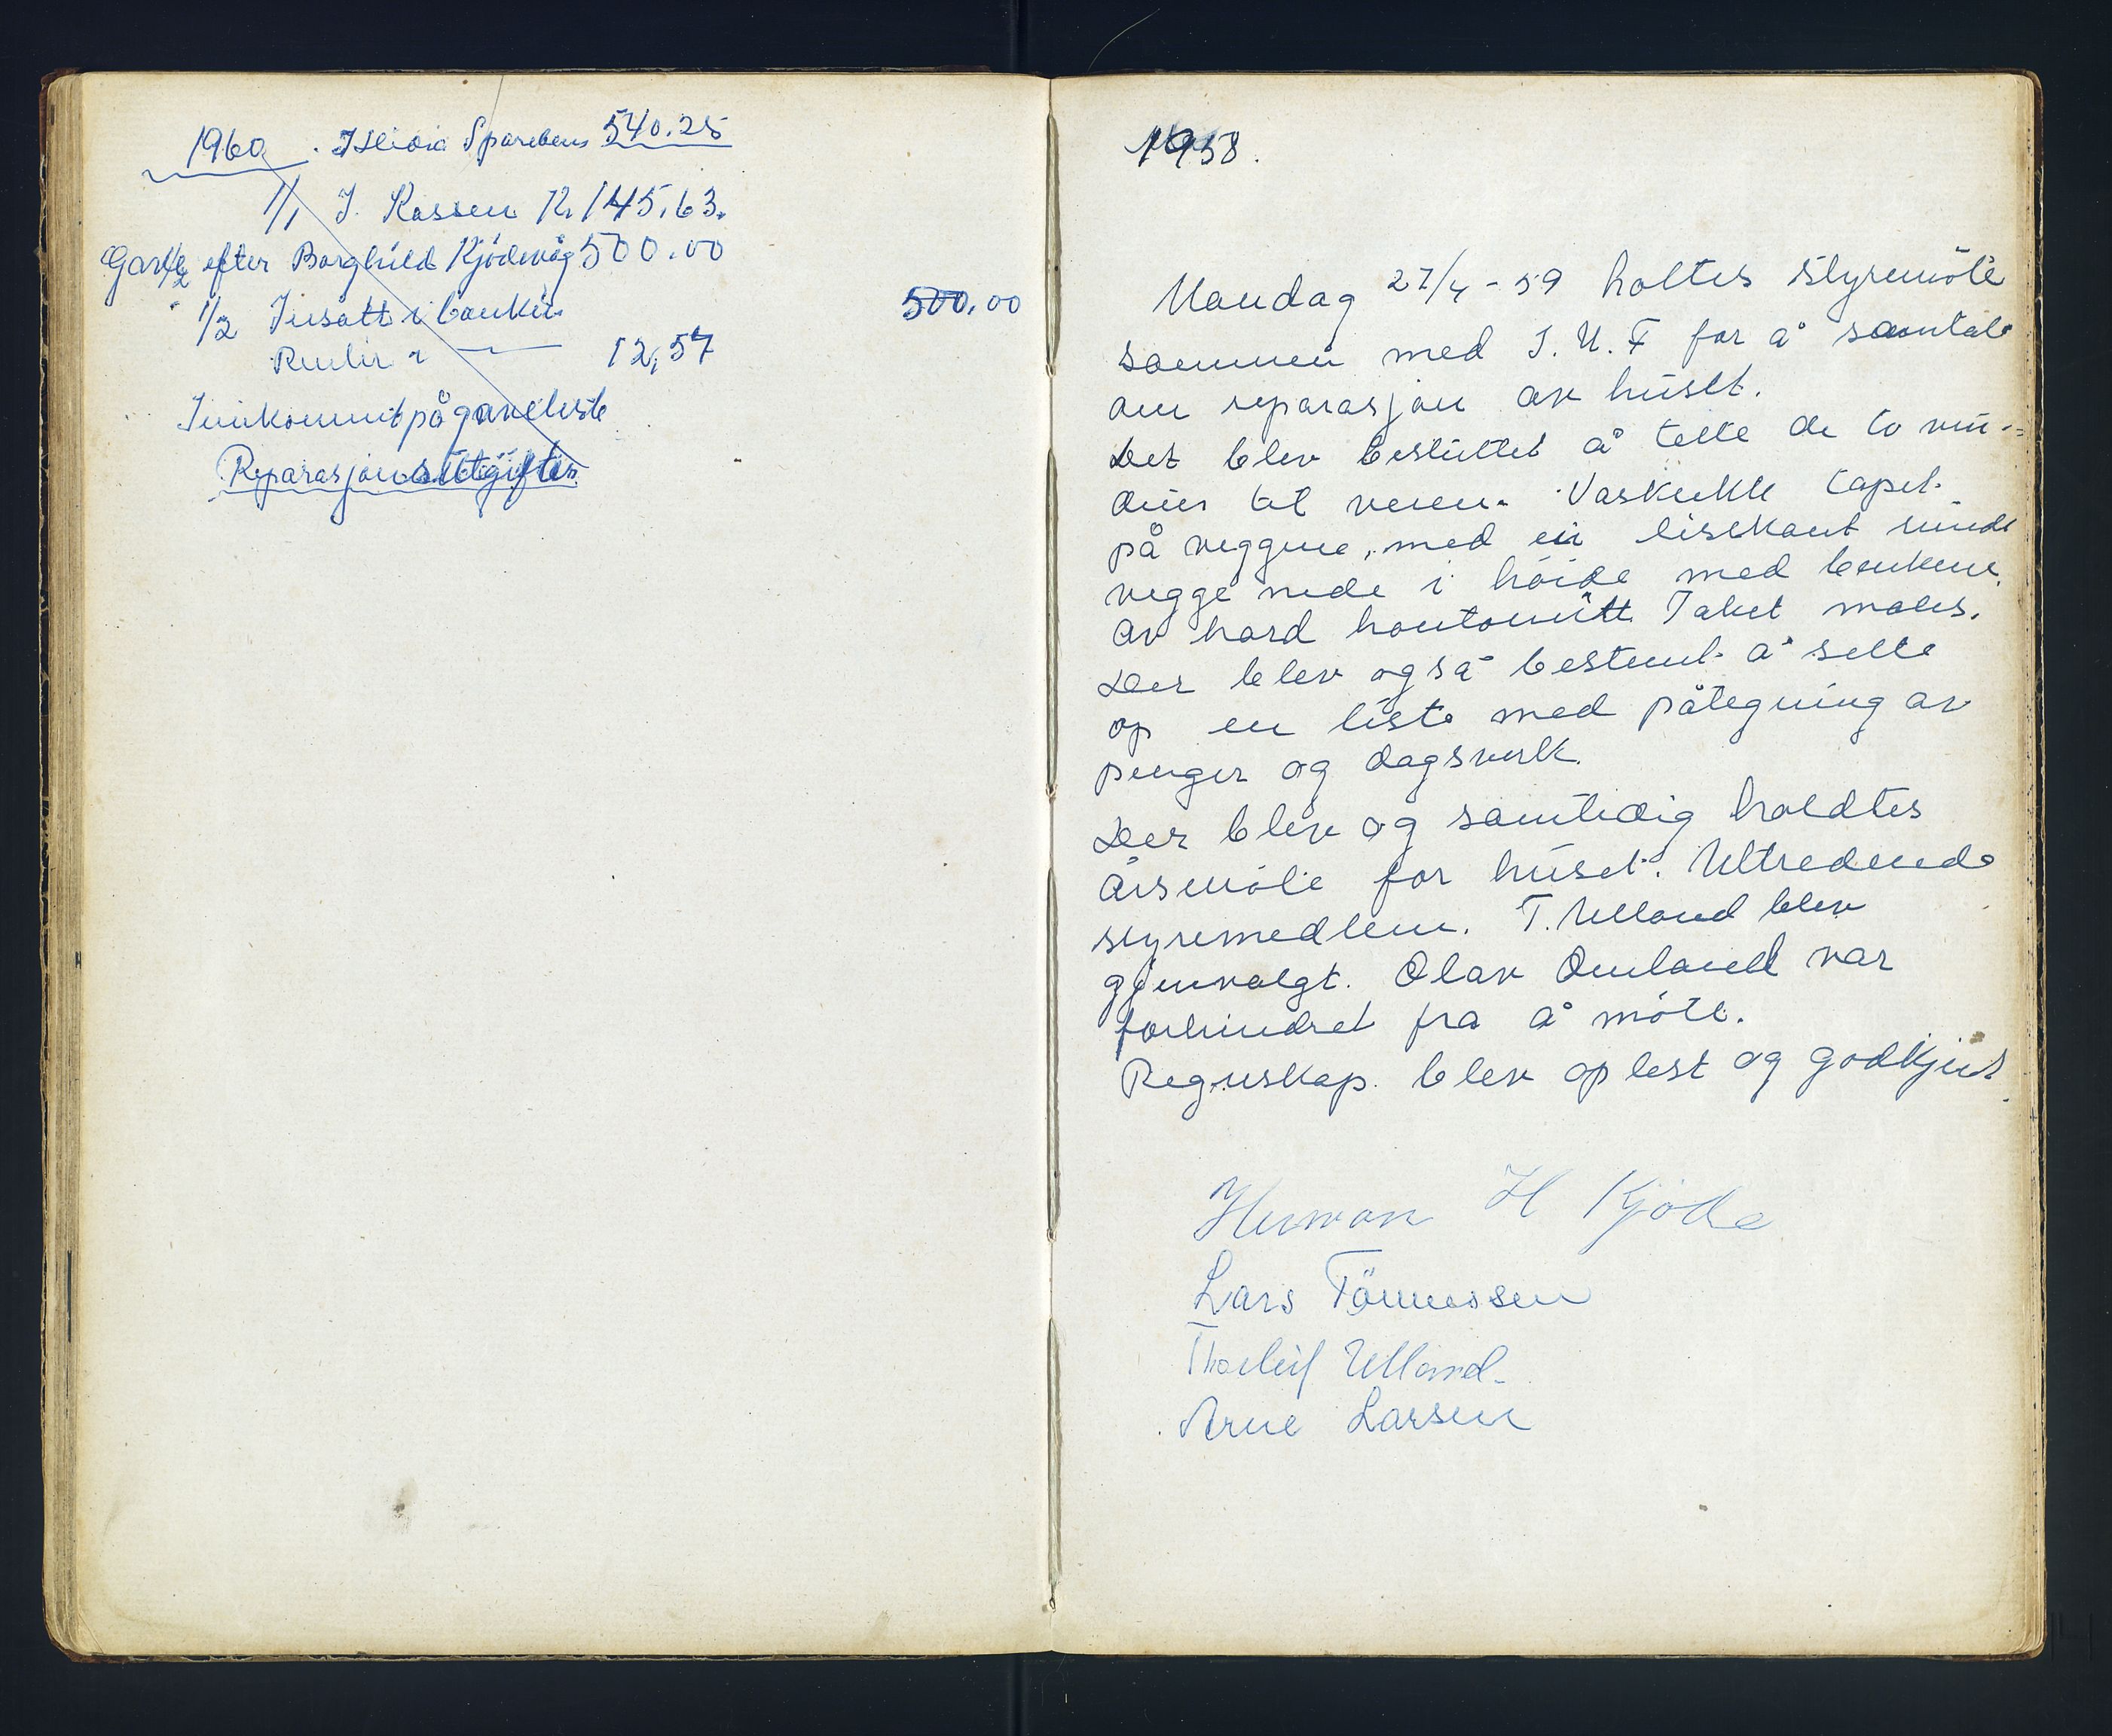 1960 . I Hidra Spareban 540.25
1/1 I. Kassen Kr 145.63.
Gave 1/2 efter Borghild Kjødevåg 500.00
1/2 Insatt i banken 500.00
Renter i — 12,57
Innkommet på gaveliste
Reparasjonsutgifter
1958.
Mandag 27/4 - 59 holtes styremöte
sammen med I.U.F for å samtale
om reparasjon av huset.
Det blev besluttet å tette de to vin-
duer til veien. Vaskekte tapet
på veggene, med en lisekant rundt
vegge nede i höide med benkene,
av hard hontonitt. Taket males.
Der blev også bestemt å sette
op en liste med påtegning av
penger og dagsverk.
Der blev og samtidig holdtes
årsmöte for huset. Uttredende
styremedlem. T. Ulland blev
gjenvalgt. Olav Omland var
forhindret fra å möte.
Regnskap. blev oplest og godkjent.
Herman H Kjöde
Lars Tönnessen
Thorleif Ulland.
Arne Larsen